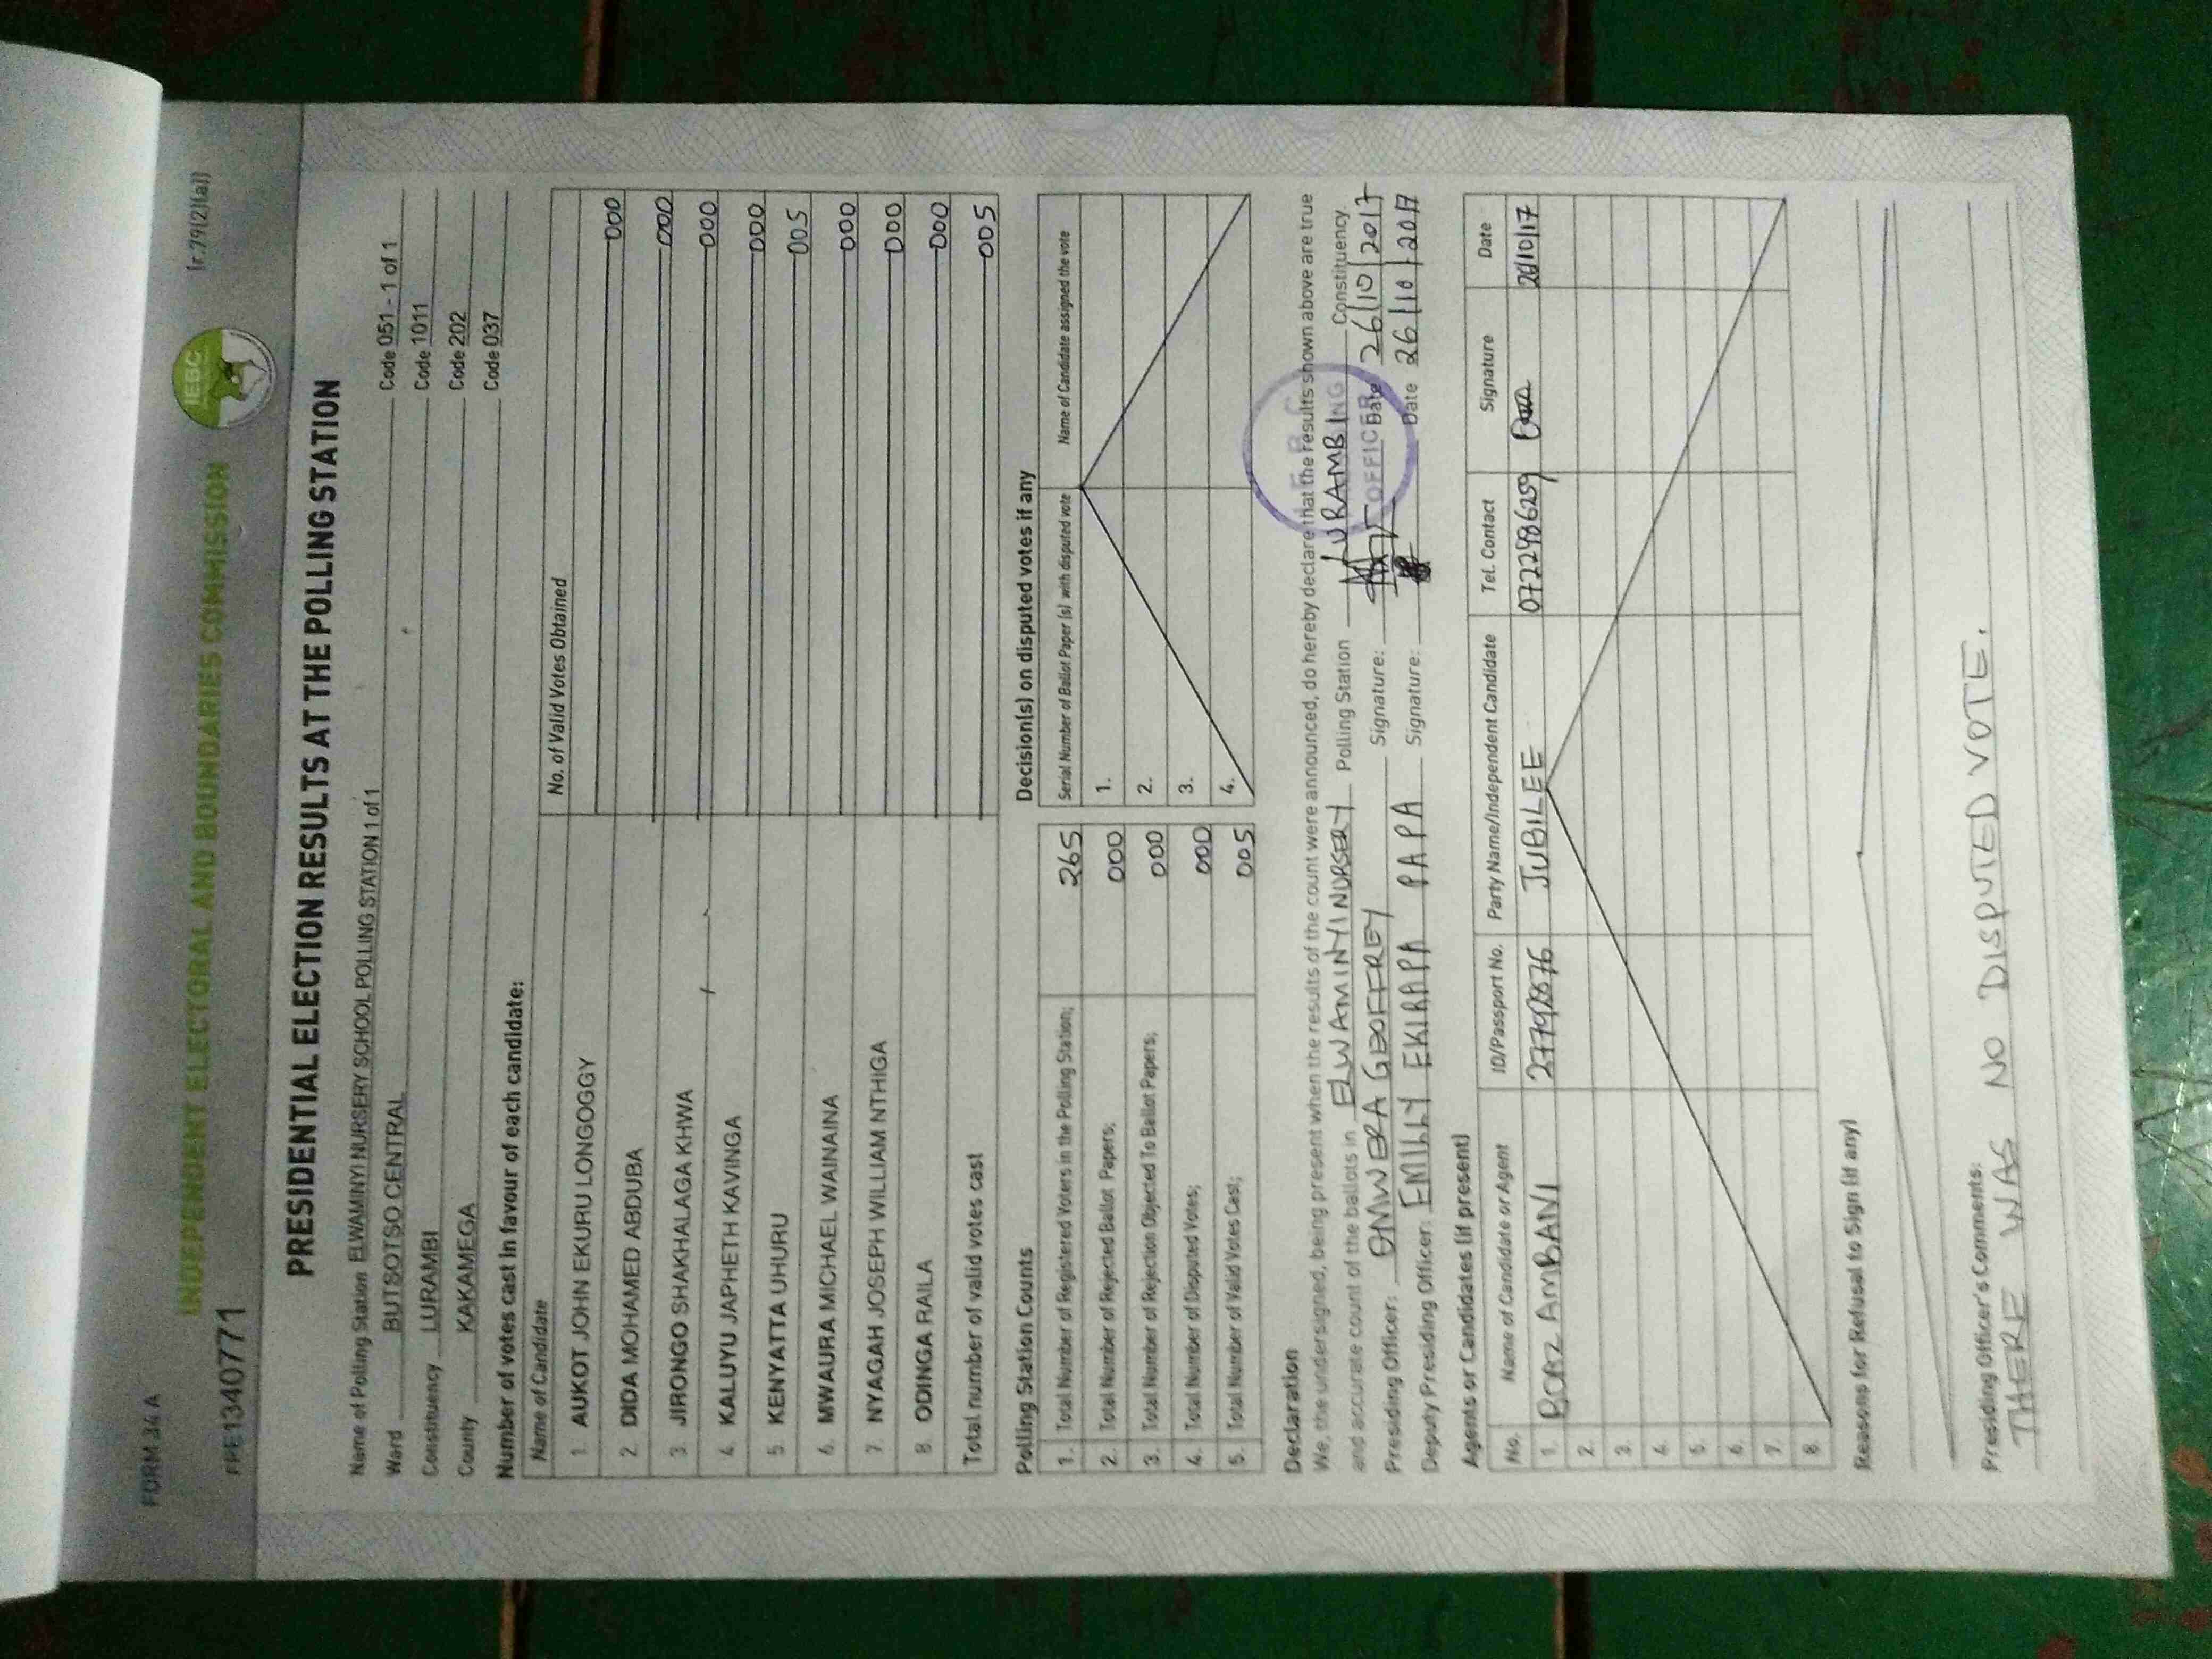 FORM 34 A
(r.79(2)(a))
INDEPENDENT ELECTORAL AND BOUNDARIES COMMISSION
IEBC
PRESIDENTIAL ELECTION RESULTS AT THE POLLING STATION
Name of Polling Station ELWAMINYI NURSERY SCHOOL POLLING STATION 1 of 1 Code 051 - 1 of 1
Ward BUTSOTSO CENTRAL Code 1011
Constituency LURAMBI Code 202
County KAKAMEGA Code 037
Number of votes cast in favour of each candidate:
Name of Candidate No. of Valid Votes Obtained
1. AUKOT JOHN EKURU LONGOGGY 000
2. DIDA MOHAMED ABDUBA 000
3. JIRONGO SHAKHALAGA KHWA 000
4. KALUYU JAPHETH KAVINGA 000
5. KENYATTA UHURU 005
6. MWAURA MICHAEL WAINAINA 000
7. NYAGAH JOSEPH WILLIAM NTHIGA 000
8. ODINGA RAILA 000
Total number of valid votes cast 005
Polling Station Counts
1. Total Number of Registered Voters in the Polling Station; 265
2. Total Number of Rejected Ballot Papers; 000
3. Total Number of Rejection Objected To Ballot Papers; 000
4. Total Number of Disputed Votes; 000
5. Total Number of Valid Votes Cast; 005
Decision(s) on disputed votes if any
Serial Number of Ballot Paper (s) with disputed vote Name of Candidate assigned the vote
1.
2.
3.
4.
Declaration
We, the undersigned, being present when the results of the count were announced, do hereby declare that the results shown above are true
and accurate count of the ballots in ELWAMINYI NURSERY Polling Station LURAMBI Constituency
Presiding Officer: OMWERA GEOFFREY Signature: Date 26/10/2017
Deputy Presiding Officer: EMILLY EKIRAPA PAPA Signature: Date 26/10/2017
OFFICER
Agents or Candidates (if present)
No. Name of Candidate or Agent ID/Passport No. Party Name/Independent Candidate Tel. Contact Signature Date
1. BOAZ AMBANI JUBILEE 0722986259 26/10/17
2.
3.
4.
5.
6.
7.
8.
Reasons for Refusal to Sign (if any)
Presiding Officer's Comments:
THERE WAS NO DISPUTED VOTE.